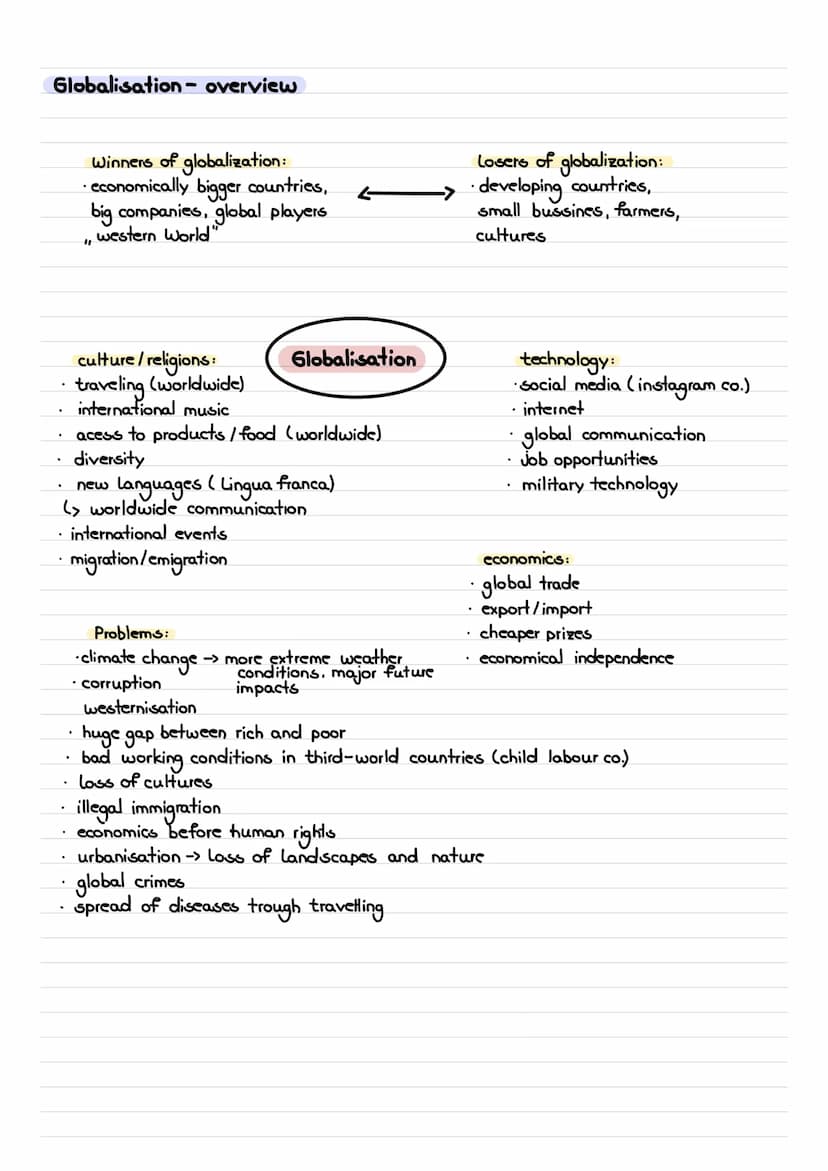 Globalisation - overview
Winners of globalization:
· economically bigger countries,
big companies, global players
„ western World"
Losers of globalization:
· developing countries,
small bussines, farmers,
cultures
Globalisation
culture/religions:
· traveling (worldwide)
· international music
· acess to products/food (worldwide)
· diversity
· new languages (Lingua franca)
↳ worldwide communication
· international events
· migration/emigration
technology:
· social media (instagram co.)
· internet
· global communication
· Job opportunities
· military technology
economics:
· global trade
· export/import
· cheaper prizes
· economical independence
Problems:
· climate change → more extreme weather
conditions. major future
impacts
· corruption
westernisation
· huge gap between rich and poor
· bad working conditions in third-world countries (child labour co.)
· loss of cultures
· illegal immigration
· economics before human rights
· urbanisation -> loss of landscapes and nature
· global crimes
· spread of diseases trough travelling